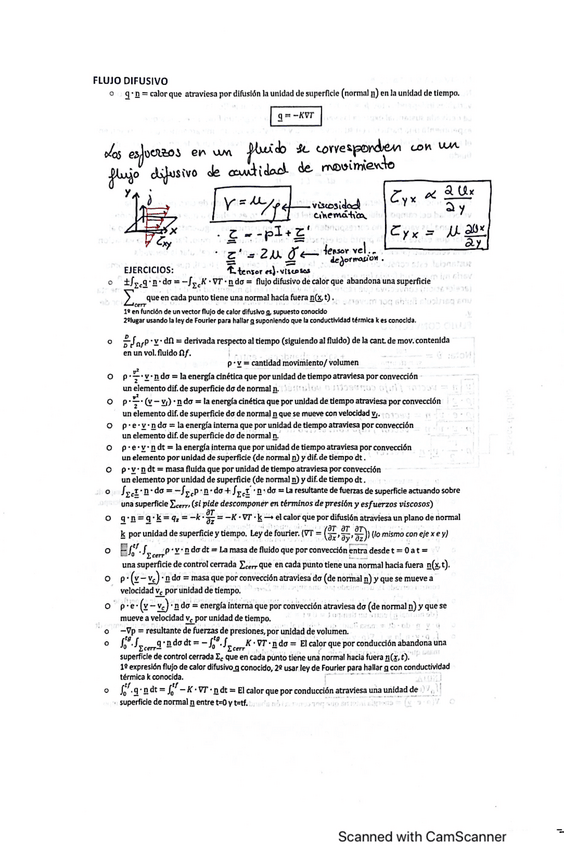 FLUJO DIFUSIVO
o q · n = calor que atraviesa por difusión la unidad de superficie (normal n) en la unidad de tiempo.
q = −K∇T
Los esfuerzos en un fluido se corresponden con un
flujo difusivo de cantidad de movimiento
y
x
τxy
ν = μ/ρ ← viscosidad
cinemática
τyx ∝ ∂Ux/∂y
τyx = μ ∂Ux/∂y
· τ = -pI + τ'
· τ' = 2μ γ ← tensor vel.
deformación.
↑ tensor es). viscosos
EJERCICIOS:
o ±∫Σc q · n · dσ = −∫Σc K · ∇T · n dσ = flujo difusivo de calor que abandona una superficie
Σcerr que en cada punto tiene una normal hacia fuera n(x, t) .
1º en función de un vector flujo de calor difusivo q, supuesto conocido
2ºlugar usando la ley de Fourier para hallar q suponiendo que la conductividad térmica k es conocida.
o D/Dt ∫Ωf ρ · v · dΩ = derivada respecto al tiempo (siguiendo al fluido) de la cant. de mov. contenida
en un vol. fluido Ωf.
ρ · v = cantidad movimiento/ volumen
o ρ · v²/2 · v · n dσ = la energía cinética que por unidad de tiempo atraviesa por convección
un elemento dif. de superficie dσ de normal n.
o ρ · v²/2 · (v − vᵢ) · n dσ = la energía cinética que por unidad de tiempo atraviesa por convección
un elemento dif. de superficie dσ de normal n que se mueve con velocidad vᵢ.
o ρ · e · v · n dσ = la energía interna que por unidad de tiempo atraviesa por convección
un elemento dif. de superficie dσ de normal n.
o ρ · e · v · n dt = la energía interna que por unidad de tiempo atraviesa por convección
un elemento por unidad de superficie (de normal n) y dif. de tiempo dt .
o ρ · v · n dt = masa fluida que por unidad de tiempo atraviesa por convección
un elemento por unidad de superficie (de normal n) y dif. de tiempo dt .
o ∫Σc τ · n · dσ = −∫Σc p · n · dσ + ∫Σc τ' · n · dσ = La resultante de fuerzas de superficie actuando sobre
una superficie Σcerr, (si pide descomponer en términos de presión y esfuerzos viscosos)
o q · n = q · k = qz = −k · ∂T/∂z = −K · ∇T · k → el calor que por difusión atraviesa un plano de normal
k por unidad de superficie y tiempo. Ley de fourier. (∇T = (∂T/∂x, ∂T/∂y, ∂T/∂z)) (lo mismo con eje x e y)
o −∫₀^tf · ∫Σcerr ρ · v · n dσ dt = La masa de fluido que por convección entra desde t = 0 a t =
una superficie de control cerrada Σcerr que en cada punto tiene una normal hacia fuera n(x, t).
o ρ · (v − vc) · n dσ = masa que por convección atraviesa dσ (de normal n) y que se mueve a
velocidad vc por unidad de tiempo.
o ρ · e · (v − vc) · n dσ = energía interna que por convección atraviesa dσ (de normal n) y que se
mueve a velocidad vc por unidad de tiempo.
o −∇p = resultante de fuerzas de presiones, por unidad de volumen.
o ∫₀^tf · ∫Σcerr q · n dσ dt = − ∫₀^tf · ∫Σcerr K · ∇T · n dσ = El calor que por conducción abandona una
superficie de control cerrada Σc que en cada punto tiene una normal hacia fuera n(x, t).
1º expresión flujo de calor difusivo q conocido, 2º usar ley de Fourier para hallar q con conductividad
térmica k conocida.
o ∫₀^tf · q · n dt = ∫₀^tf − K · ∇T · n dt = El calor que por conducción atraviesa una unidad de
superficie de normal n entre t=0 y t=tf.
Scanned with CamScanner